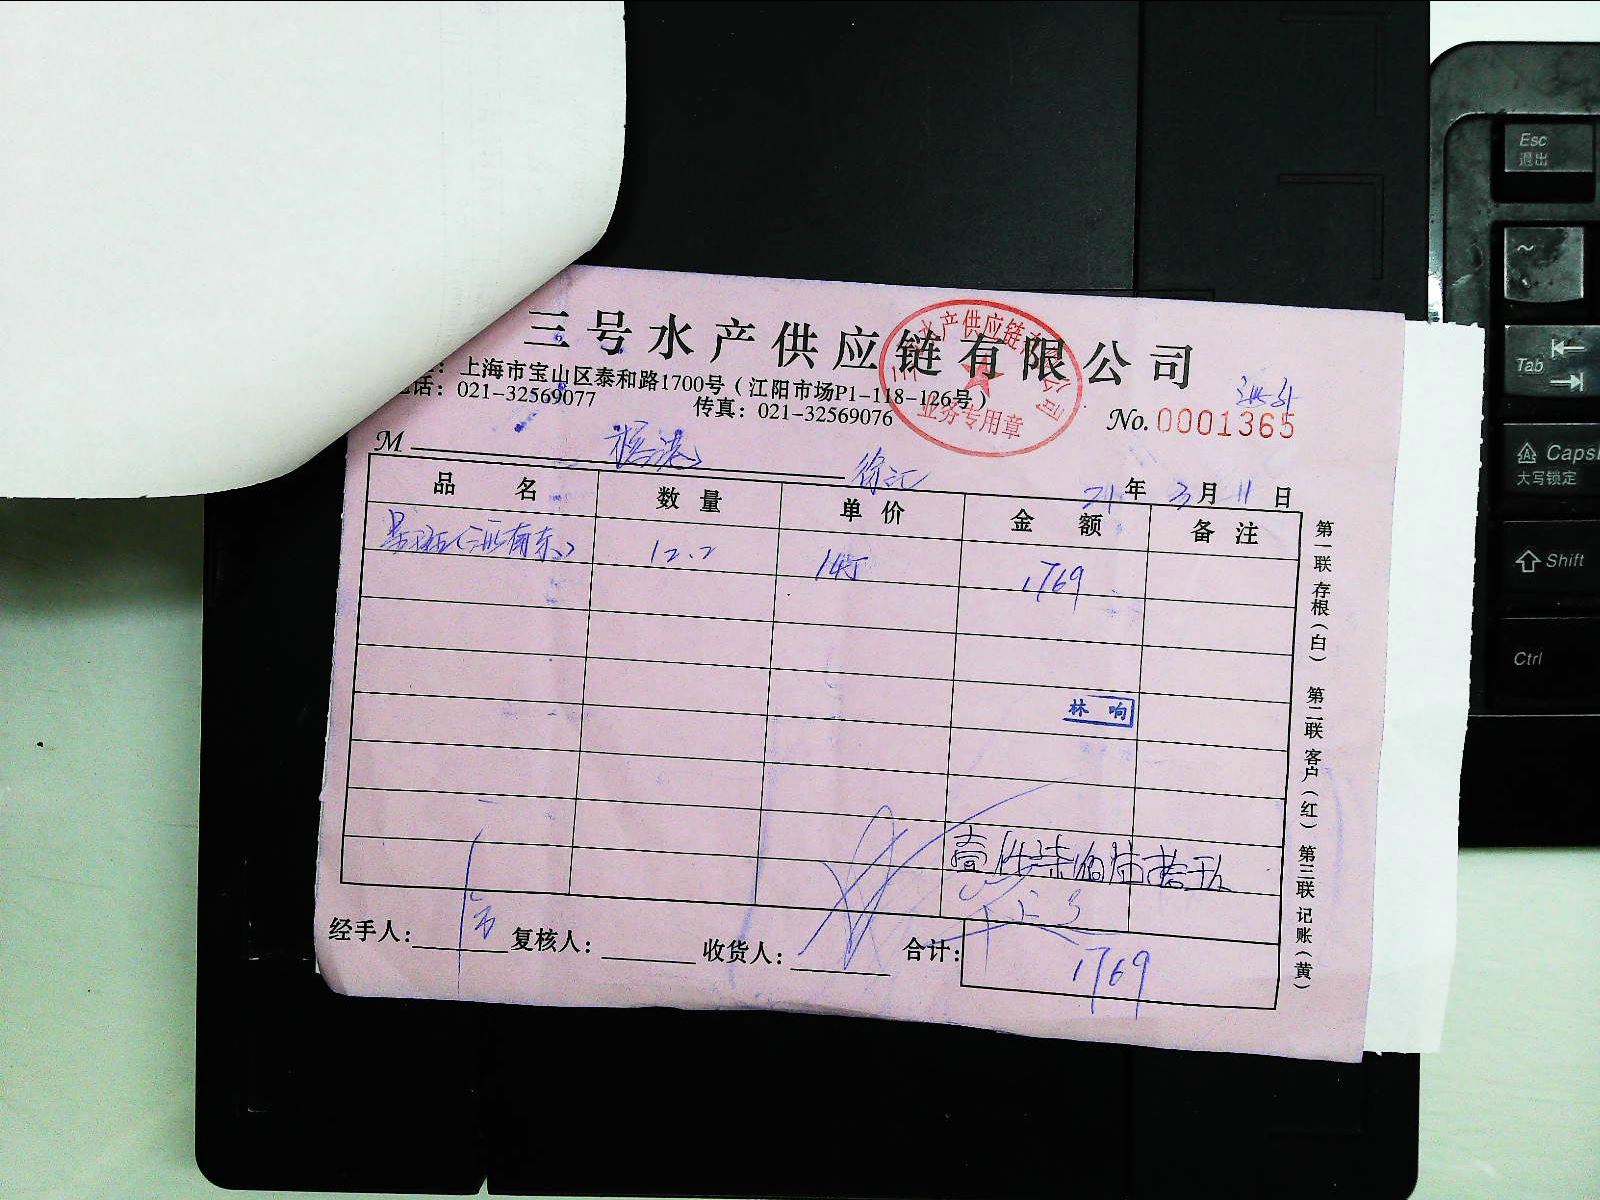 三号水产供应链有限公司
：上海市宝山区泰和路1700号（江阳市场P1-118-126号）
话：021-32569077 传真：021-32569076
三号水产供应链有限公司
业务专用章
No. 0001365
M 徐汇
21年 3月 11日
品名 数量 单价 金额 备注
12.2 145 1769
林响
壹仟柒佰陆拾玖
经手人： 复核人： 收货人： 合计： 1769
第一联 存根（白） 第二联 客户（红） 第三联 记账（黄）
Esc
退出
~
Tab
Caps
大写锁定
Shift
Ctrl